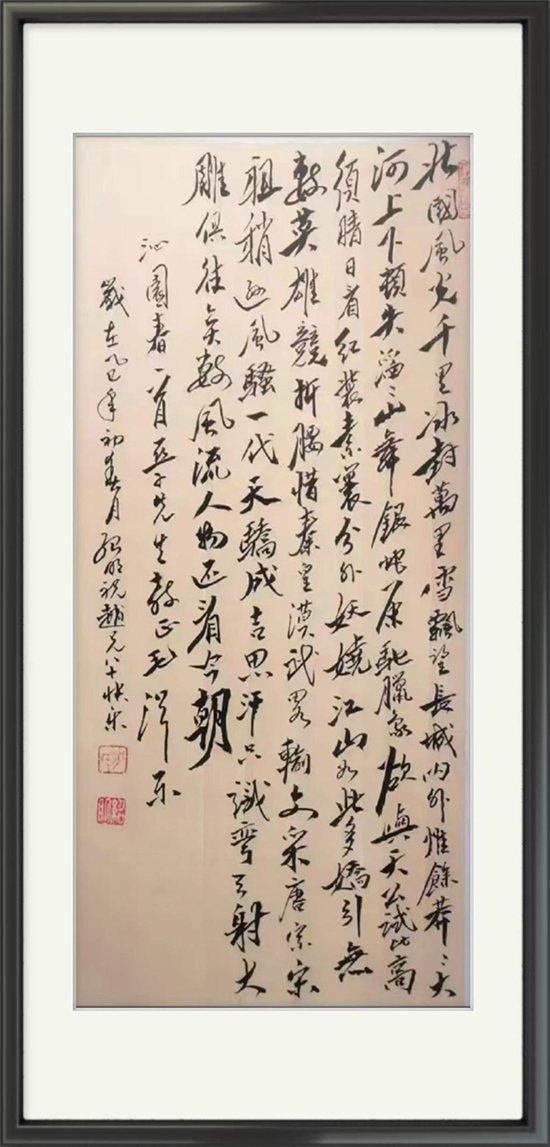 北國風光千里冰封萬里雪飄望長城内外惟餘莽〻大
河上下頓失滔〻山舞銀蛇原馳臘象欲與天公試比高
須晴日看紅裝素裹分外妖嬈江山如此多嬌引無
數英雄競折腰惜秦皇漢武畧輸文采唐宗宋
祖稍逊風騷一代天驕成吉思汗只識彎弓射大
雕俱往矣數風流人物还看今朝
沁園春一首亞子先生教正毛澤东
歲在乙巳年初春月明祝趙兄八十快乐